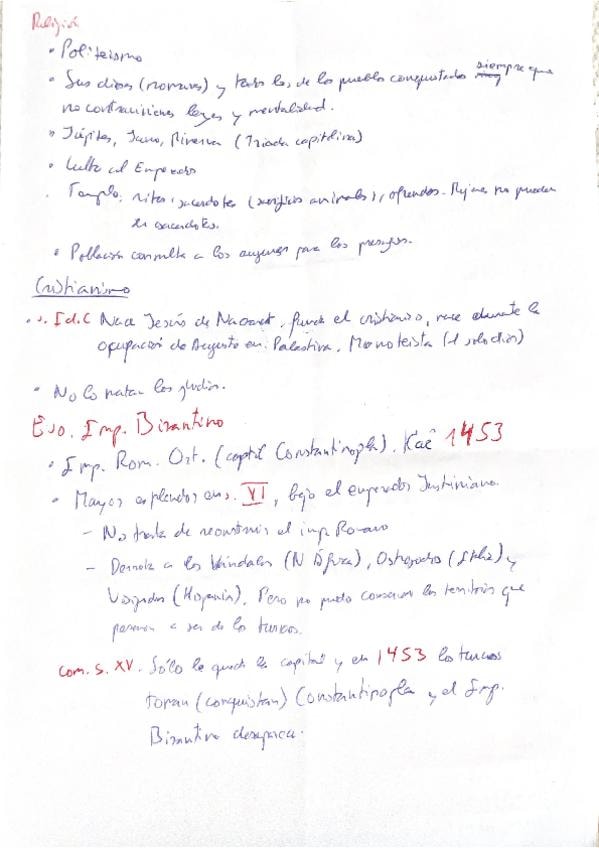 Religión
• Politeismo
• Sus dioses (romanos) y todos los de los pueblos conquistados siempre que
no contraviniesen leyes y mentalidad.
• Júpiter, Juno, Minerva (Triada capitolina)
• Culto al Emperador
• Templo, ritos, sacerdotes (sacrificios animales), ofrendas. Mujeres no pueden
ser sacerdotes.
• Población consulta a los augures para los presagios.
Cristianismo
• s. I d.C Nace Jesús de Nazaret, funda el cristianismo, nace durante la
ocupación de Augusto en Palestina. Monoteista (1 solo dios)
• No lo matan los judios.
Evo. Imp. Bizantino
• Imp. Rom. Ort. (capital Constantinopla). Kaê 1453
• Mayor esplendor en s. VI, bajo el emperador Justiniano.
– No trata de reconstruir el imp. Romano
– Derrota a los Vándalos (N África), Ostrogodos (Italia) y
Visigodos (Hispania). Pero no pudo conservar los territorios que
pasaron a ser de los turcos.
com. s. XV. Sólo le queda la capital y en 1453 los turcos
toman (conquistan) Constantinopla y el Imp.
Bizantino desaparece.